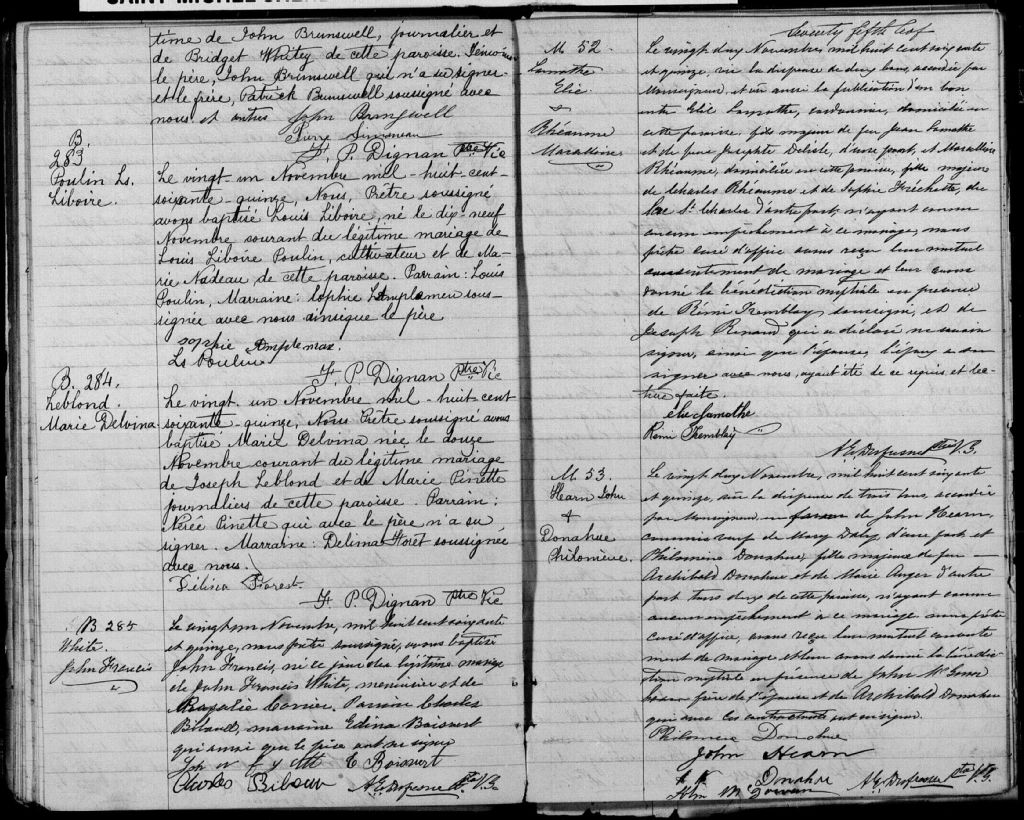 time de John Brunswell, journalier et
de Bridget Whitey de cette paroisse. Témoins
le père, John Brunswell qui n'a su signer
et le frère, Patrick Brunswell soussigné avec
nous et autres John Brunswell
F. P. Dignan Ptre Vic
B.
283
Poulin Ls.
Liboire.
Le vingt-un Novembre mil-huit-cent-
soixante-quinze, Nous, Prêtre soussigné
avons baptisé Louis Liboire, né le dix-neuf
Novembre courant du légitime mariage de
Louis Liboire Poulin, cultivateur et de Ma-
rie Nadeau de cette paroisse. Parrain: Louis
Poulin, Marraine: Sophie Lamplemen sous-
signée avec nous ainsique le père
sophie Amplemax.
Ls Poulin
F. P. Dignan Ptre Vic
B. 284.
Leblond.
Marie Delvina
Le vingt-un Novembre mil-huit cent
soixante-quinze, Nous Prêtre soussigné avons
baptisé Marie Delvina née le douze
Novembre courant du légitime mariage
de Joseph Leblond et de Marie Pinette
journaliers de cette paroisse. Parrain:
Nérée Pinette qui avec le père n'a su
signer. Marraine: Delima Foret soussignée
avec nous.
Forest
F. P. Dignan Ptre Vic
B 285
White.
John Francis
Le vingt un Novembre, mil huit cent soixante
et quinze, nous prêtre soussigné, avons baptisé
John Francis, né ce jour du légitime mariage
de John Francis White, menuisier et de
Rosalie Carrier. Parrain Charles
marraine Edina Boisvert
qui ainsi que le père ont su signer
E Boisvert
Charles
A. E. Dufresne Ptre V.B.
Seventy fifth leaf
M 52.
Lamothe
Elie
&
Rhéaume
Le vingt deux Novembre mil huit cent soixante
et quinze, vu la dispense de deux bans, accordée par
Monseigneur, et vu aussi la publication d'un ban
entre Elie Lamothe, cordonnier, domicilié en
cette paroisse, fils majeur de feu Jean Lamothe
et de feue Josephte Delisle, d'une part, et
Rhéaume, domiciliée en cette paroisse, fille majeure
de Charles Rhéaume et de Sophie Fréchette, du
Lac St Charles d'autre part; n'ayant connu
aucun empêchement à ce mariage, nous
prêtre curé d'office avons reçu leur mutuel
consentement de mariage et leur avons
donné la bénédiction nuptiale en présence
de Rémi Tremblay, soussigné, et de
Joseph Renaud qui a déclaré ne savoir
signer, ainsi que l'épouse, l'époux a su
signer avec nous, ayant été de ce requis et lec-
ture faite.
Elie Lamothe
Remi Tremblay
A. E. Dufresne Ptre V.B.
M 53.
Hearn John
&
Donahue
Philomène.
Le vingt deux Novembre, mil huit cent soixante
et quinze, vu la dispense de trois bans, accordée
par Monseigneur en faveur de John Hearn,
commis veuf de Mary Daly d'une part et
Philomène Donahue, fille majeure de feu
Archibald Donahue et de Marie Auger d'autre
part tous deux de cette paroisse, n'ayant connu
aucun empêchement à ce mariage nous prêtre
curé d'office, avons reçu leur mutuel consente
ment de mariage et leur avons donné la bénédic
tion nuptiale en présence de John Mc Gowan
beau-frère de l'épouse et de Archibald Donahue
qui avec les contractants ont su signer.
Philomene Donahue
John Hearn
Donahue
John McGowan
A. E. Dufresne Ptre V.B.